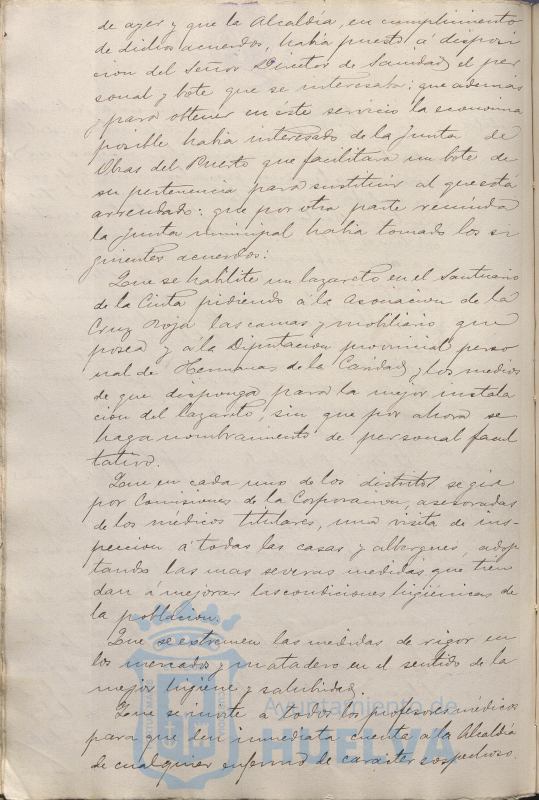 de ayer y que la Alcaldia, en cumplimiento
de dichos acuerdos, habia puesto á disposi
cion del Señor Director de Sanidad el per
sonal y bote que se interesaba: que además
y para obtener en éste servicio la economia
posible habia interesado de la Junta de
Obras del Puerto que facilitara un bote de
su pertenencia para sustituir al que está
arrendado: que por otra parte reunida
la Junta municipal habia tomado los si
guientes acuerdos:
Que se habilite un lazareto en el Santuario
de la Cinta pidiendo á la Asociacion de la
Cruz Roja las camas y mobiliario que
posea y á la Diputacion provincial perso
nal de Hermanas de la Caridad y los medios
de que disponga para la mejor instala
cion del lazareto, sin que por ahora se
haga nombramiento de personal facul
tativo.
Que en cada uno de los distritos se gire
por Comisiones de la Corporacion, asesoradas
de los médicos titulares, una visita de ins-
peccion á todas las casas y albergues, adop
tando las mas severas medidas que tien
dan á mejorar las condiciones higiénicas de
la poblacion.
Que se estremen las medidas de rigor en
los mercados y matadero en el sentido de la
mejor higiene y salubridad.
Que se invite á todos los profesores médicos
para que den inmediata cuenta á la Alcaldia
de cualquier enfermo de caracter sospechoso
Ayuntamiento de
HUELVA